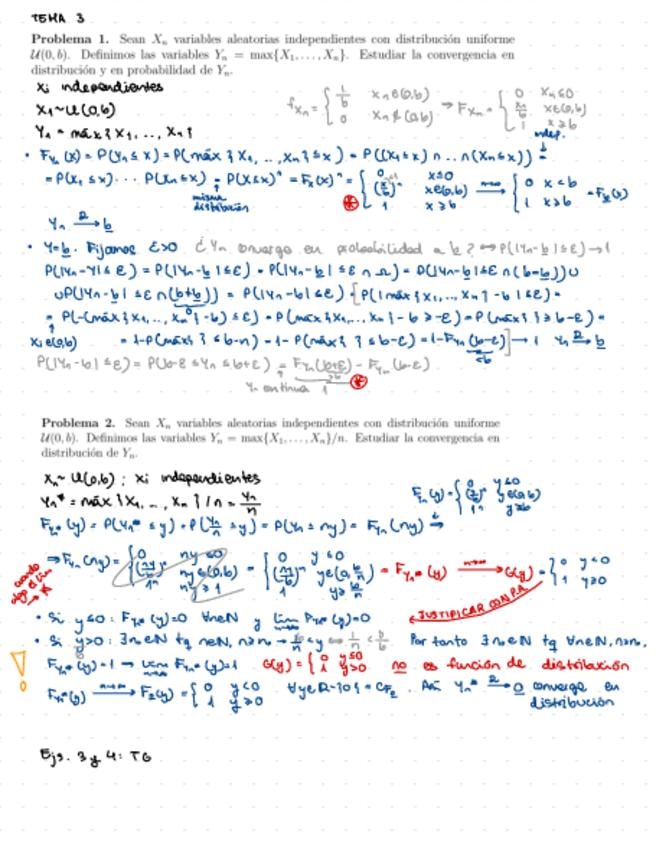 TEMA 3
Problema 1. Sean Xₙ variables aleatorias independientes con distribución uniforme
U(0, b). Definimos las variables Yₙ = max{X₁, . . . , Xₙ}. Estudiar la convergencia en
distribución y en probabilidad de Yₙ.
Xi independientes
X₁ ~ U(0,b)
Yₙ = máx {X₁, .., Xₙ}
f_Xₙ = { 1/b Xₙ∈(0,b) ; 0 Xₙ∉(0,b) → F_Xₙ = { 0 Xₙ≤0 ; x/b x∈(0,b) ; 1 x≥b
indep.
• F_Yₙ(x) = P(Yₙ ≤ x) = P(máx {X₁, .., Xₙ} ≤ x) = P((X₁ ≤ x) ∩ .. ∩ (Xₙ ≤ x)) =
= P(X₁ ≤ x) ... P(Xₙ ≤ x) = P(X ≤ x)ⁿ = F_X(x)ⁿ = { 0 x≤0 ; (x/b)ⁿ x∈(0,b) ; 1 x≥b → { 0 x<b ; 1 x≥b = F_Y(x)
misma
distribución
Yₙ →ᴰ b
• Y=b. Fijamos ε>0 ¿Yₙ converge en probabilidad a b? ↔ P(|Yₙ-b| ≤ ε) → 1
P(|Yₙ-Y| ≤ ε) = P(|Yₙ-b| ≤ ε) = P(|Yₙ-b| ≤ ε ∩ Ω) = P(|Yₙ-b| ≤ ε ∩ (b=b)) ∪
∪ P(|Yₙ-b| ≤ ε ∩ (b≠b)) = P(|Yₙ-b| ≤ ε) = [P(|máx {X₁, .., Xₙ} - b| ≤ ε) =
= P(-(máx {X₁, .., Xₙ} - b) ≤ ε) = P(máx {X₁, .., Xₙ} - b ≥ -ε) = P(máx {} ≥ b-ε) =
Xi∈(0,b)
= 1-P(máx {} ≤ b-ε) = 1-F_Yₙ(b-ε)] → 1 Yₙ → b
<b
P(|Yₙ-b| ≤ ε) = P(b-ε ≤ Yₙ ≤ b+ε) = F_Yₙ(b+ε) - F_Yₙ(b-ε)
Yₙ continua 1
Problema 2. Sean Xₙ variables aleatorias independientes con distribución uniforme
U(0, b). Definimos las variables Yₙ = max{X₁, . . . , Xₙ}/n. Estudiar la convergencia en
distribución de Yₙ.
Xₙ ~ U(0,b) ; Xi independientes
Yₙ* = máx {X₁, .., Xₙ} / n = Yₙ/n
F_Yₙ(y) = { 0 y≤0 ; (y/b)ⁿ y∈(0,b) ; 1 y≥b
F_Yₙ*(y) = P(Yₙ* ≤ y) = P(Yₙ/n ≤ y) = P(Yₙ ≤ ny) = F_Yₙ(ny) =
→ F_Yₙ(ny) = { 0 ny≤0 ; (ny/b)ⁿ ny∈(0,b) ; 1 ny≥1 = { 0 y≤0 ; (ny/b)ⁿ y∈(0,b/n) ; 1 y≥b/n = F_Yₙ*(y) → G(y) = { 0 y<0 ; 1 y≥0
JUSTIFICAR CON P.A.
• Si y≤0: F_Yₙ*(y)=0 ∀n∈N y lim F_Yₙ*(y)=0
• Si y>0: ∃n₀∈N tq n∈N, n≥n₀ → b/n < y ↔ 1/n < y/b Por tanto ∃n₀∈N tq ∀n∈N, n≥n₀,
F_Yₙ*(y)=1 → lim F_Yₙ*(y)=1 G(y) = { 0 y≤0 ; 1 y>0 no es función de distribución
F_Yₙ*(y) → F_Z(y) = { 0 y<0 ; 1 y≥0 ∀y∈R-{0} = C_FZ. Así Yₙ* →ᴰ 0 converge en
distribución
Ejs. 3 y 4: TG